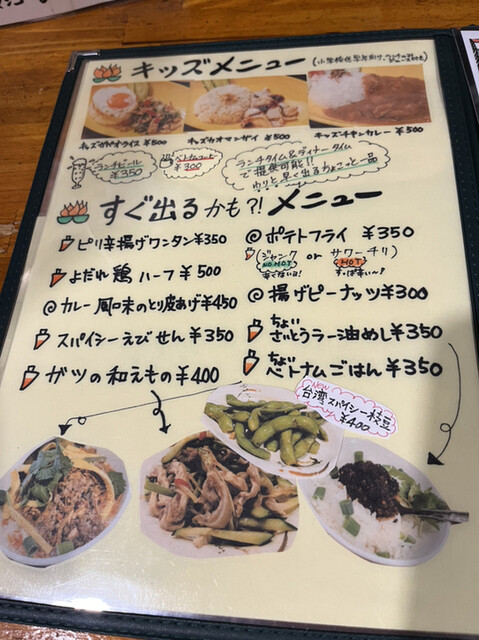 キッズメニュー
キッズガパオライス ¥500
キッズカオマンガイ ¥500
キッズチキンカレー ¥500
ランチビール
¥350
ベトナムコーヒー
¥300
ランチタイム&ディナータイム
で提供可能!!
わりと早く出るちょこっと一品
すぐ出るかも?!メニュー
ピリ辛揚げワンタン¥350
よだれ鶏 ハーフ¥500
@カレー風味のとり皮あげ¥450
スパイシーえびせん¥350
ガツの和えもの¥400
@ポテトフライ ¥350
(ジャンク or サワーチリ)
NO HOT
HOT
辛くない日!
すっぱ辛い〜
@揚げピーナッツ¥300
ちょい
さいとうラー油めし¥350
ちょい
ベトナムごはん¥350
NEW
台湾スパイシー枝豆
¥400